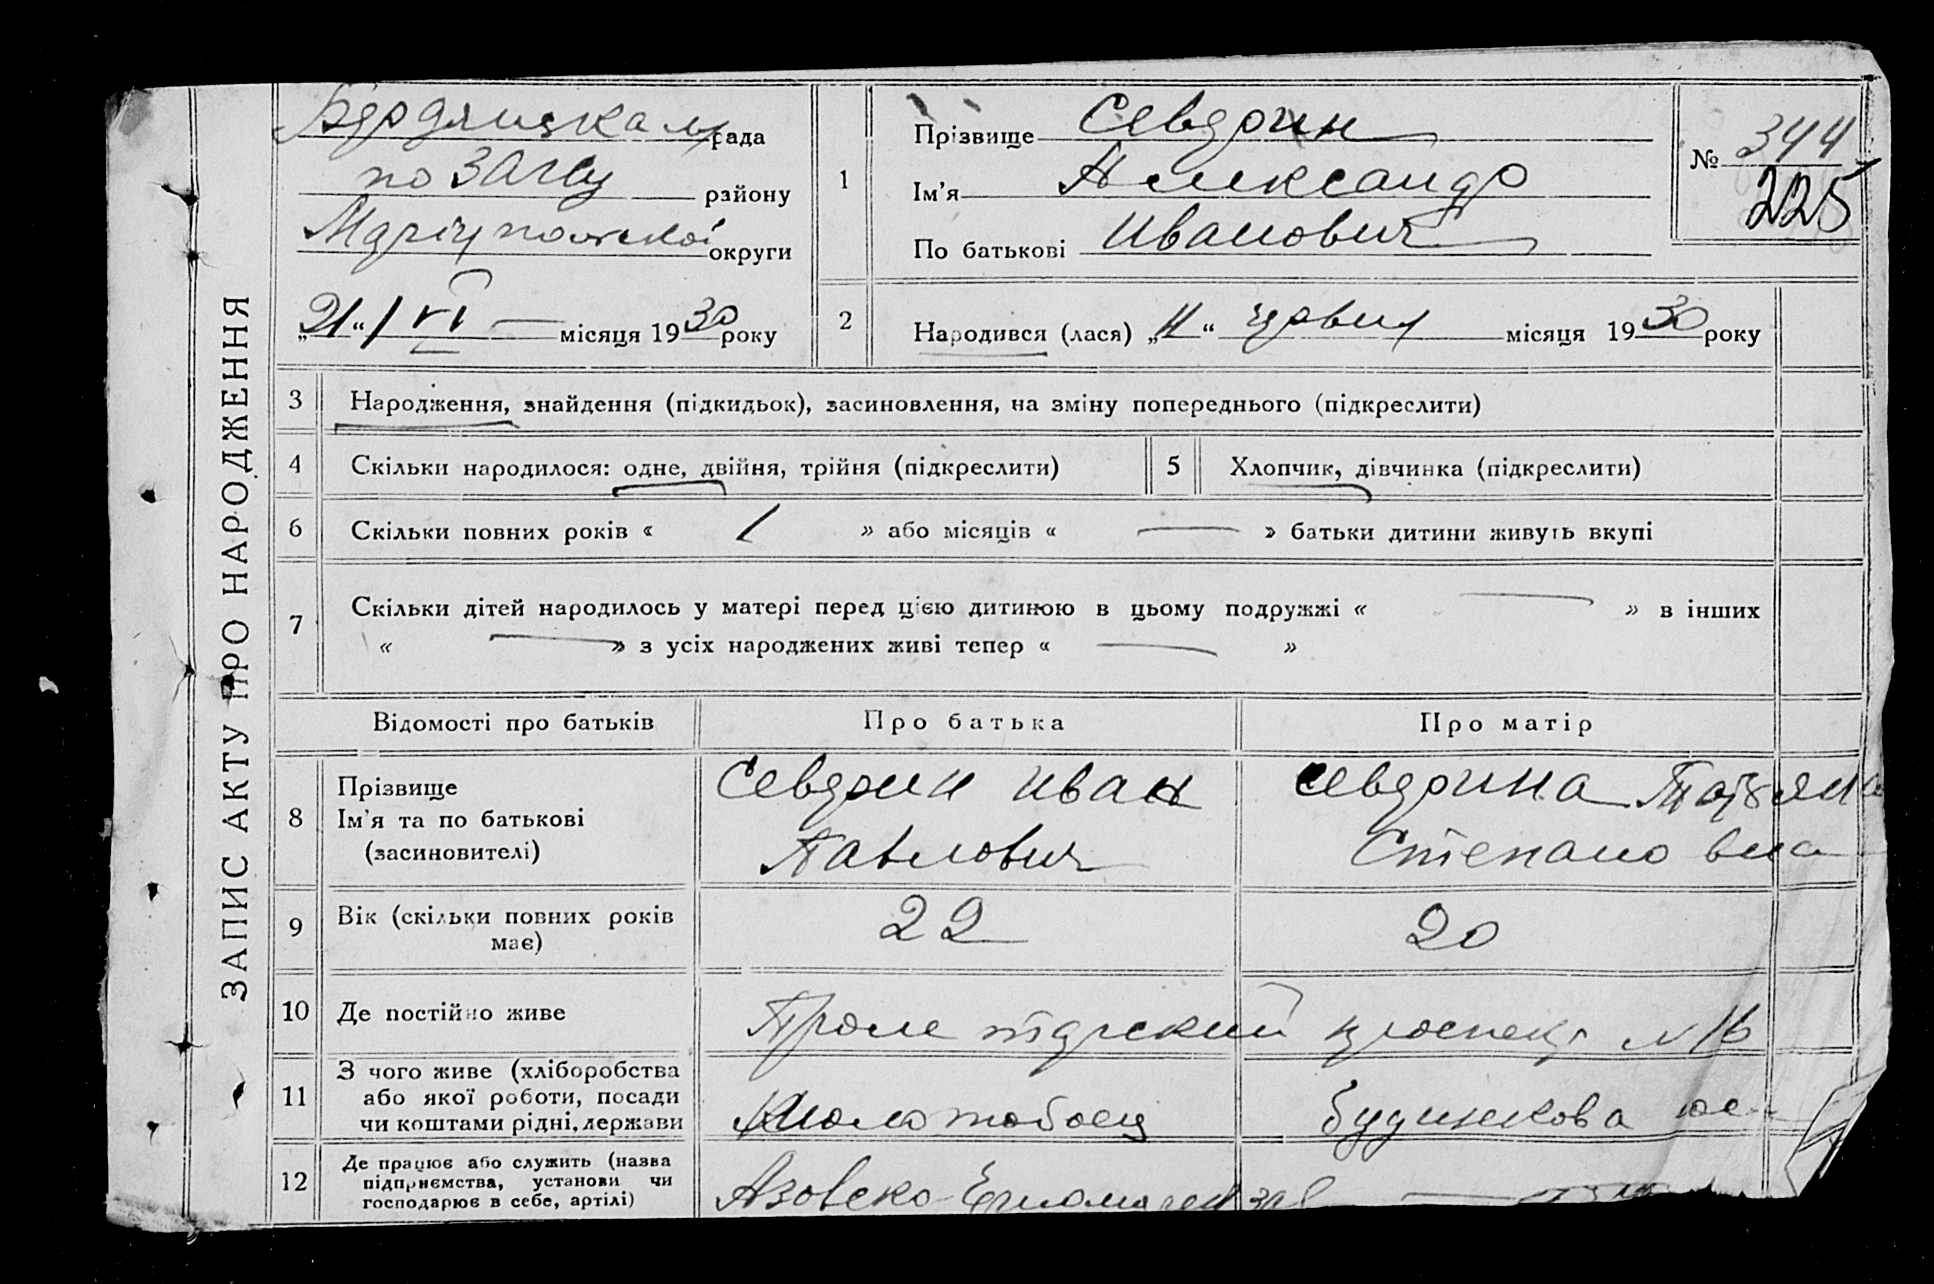 ЗАПИС АКТУ ПРО НАРОДЖЕННЯ
рада
по ЗАГСу району
Маріупольскої округи
„21“ / VI місяця 1930 року
1
Прізвище Севдрин
Ім’я Александр
По батькові Иванович
№ 344
225
2
Народився (лася) „11“ червня місяця 1930 року
3 Народження, знайдення (підкидьок), засиновлення, на зміну попереднього (підкреслити)
4 Скільки народилося: одне, двійня, трійня (підкреслити) 5 Хлопчик, дівчинка (підкреслити)
6 Скільки повних років « 1 » або місяців « — » батьки дитини живуть вкупі
7 Скільки дітей народилось у матері перед цією дитиною в цьому подружжі « — » в інших
« — » з усіх народжених живі тепер « — »
Відомості про батьків Про батька Про матір
8 Прізвище
Ім’я та по батькові
(засиновителі)
Севдрин Иван
Павлович
Севдрина Татьяна
Степановна
9 Вік (скільки повних років
має)
22 20
10 Де постійно живе Пролетарский проспект № 16
11 З чого живе (хліборобства
або якої роботи, посади
чи коштами рідні, держави
Молотобоец
12 Де працює або служить (назва
підприємства, установи чи
господарює в себе, артілі)
Азовско